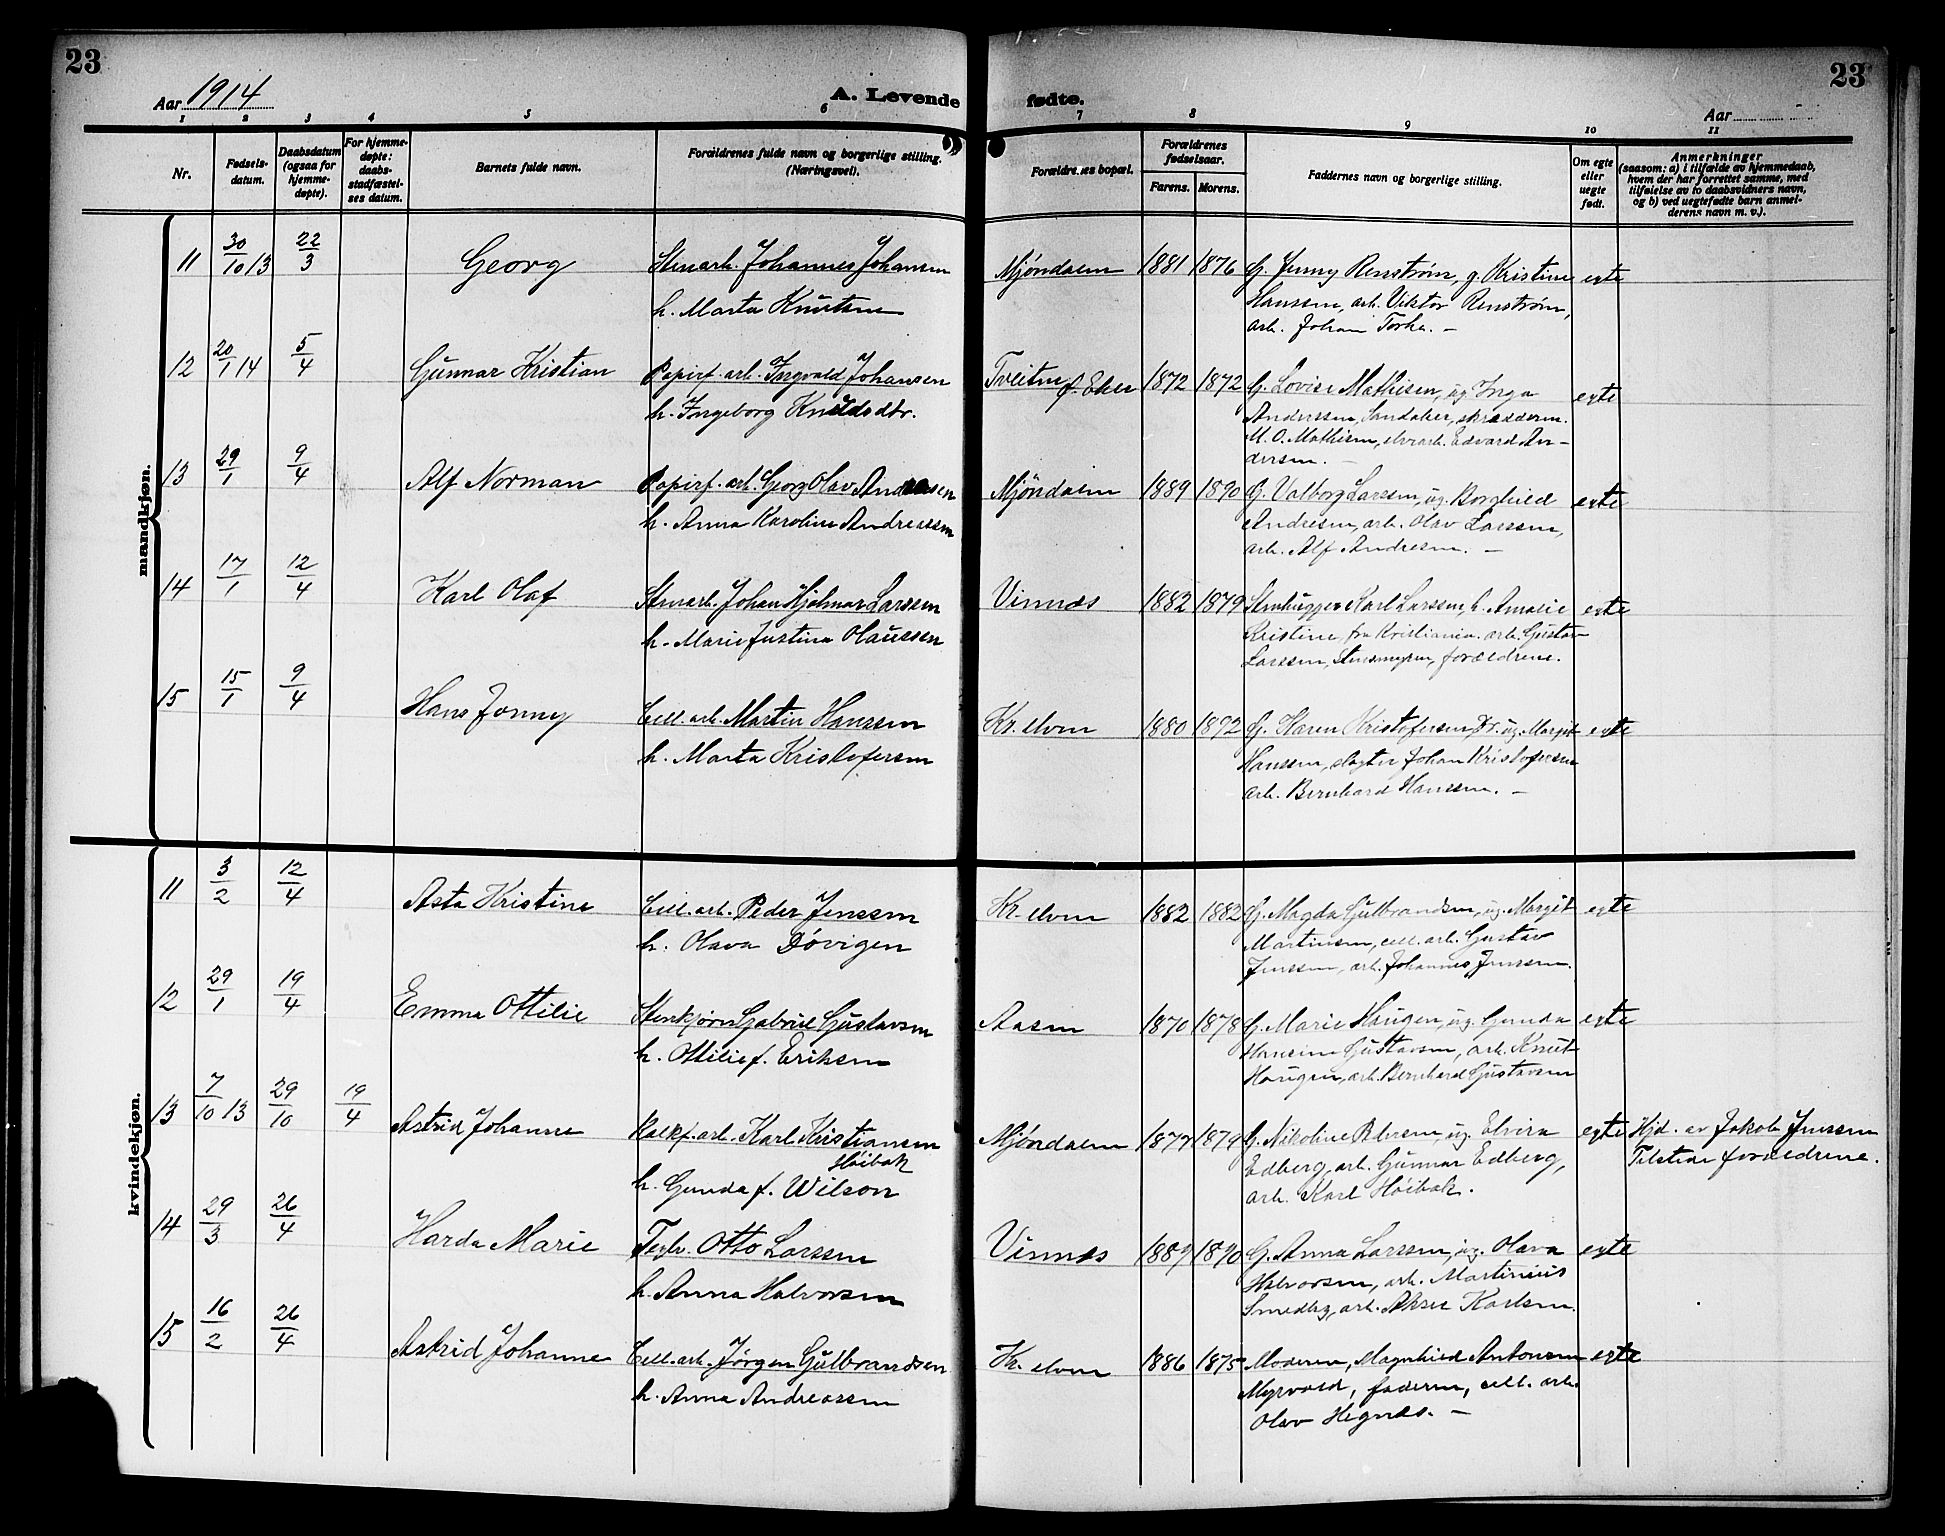 23
23
Aar 1914
A. Levende fødte.
Aar
1 2 3 4 5 6 7 8 9 10 11
Nr.
Fødsels-
datum.
Daabsdatum
(ogsaa for
hjemme-
døpte).
For hjemme-
døpte:
daabs-
stadfæstel-
ses datum.
Barnets fulde navn.
Forældrenes fulde navn og borgerlige stilling.
(Næringsvei).
Forældrenes bopæl.
Forældrenes
fødselsaar.
Farens. Morens.
Faddernes navn og borgerlige stilling.
Om egte
eller
uegte
født.
Anmerkninger
(saasom: a) i tilfælde av hjemmedaab,
hvem der har forrettet samme, med
tilføielse av to daabsvidners navn,
og b) ved uegtefødte barn anmel-
derens navn m. v.).
mandkjøn.
11 30/10 13 22/3 Georg Stenarb. Johannes Johansen Mjøndalen 1881 1876 G. Jenny Renstrøm, g. Kristine egte
h. Marta Knutsen Hanssen, arb. Viktor Renstrøm,
arb. Johan Torke. –
12 20/1 14 5/4 Gunnar Kristian Papirf. arb. Ingvald Johansen Tveiten f. Eker 1872 1872 G. Lovise Mathisen, ug. Inga egte
h. Ingeborg Knudsdtr. Anderssen, Sandaker, skrædderm.
M. O. Mathisen, elvearb. Edvard An-
dersen. –
13 29/1 9/4 Alf Norman Papirf. arb. Georg Olav Andresen Mjøndalen 1889 1890 G. Valborg Larssen, ug. Borghild egte
h. Anna Karoline Andreassen Andresen, arb. Olav Larssen,
arb. Alf Andresen. –
14 17/1 12/4 Karl Olaf Stenarb. Johan Hjalmar Larssen Vinnæs 1882 1879 Stenhugger Karl Larssen, h. Amalie egte
h. Marie Justina Olaussen Kristine, fra Kristiania. arb. Gustav
Larssen, Stensmyren, forældrene.
15 15/1 9/4 Hans Jonny Cell. arb. Martin Hanssen Kr. elven 1880 1892 G. Karen Kristofersen, ug. Margit egte
h. Marta Kristofersen Hanssen, slagter Johan Kristofersen
arb. Bernhard Hanssen. –
kvindekjøn.
11 3/2 12/4 Asta Kristine Cell. arb. Peder Jenssen Kr. elven 1882 1882 G. Magda Gulbrandsen, ug. Margit egte
h. Olava Døvigen Martinsen, cell. arb. Gustav
Jenssen, arb. Johannes Jenssen.
12 29/1 19/4 Emma Ottilie Stenkjører Gabriel Gustavsen Aasen 1870 1878 G. Marie Haugen, ug. Gunda egte
h. Ottilie f. Eriksen Hansine Gustavsen, arb. Knut
Haugen, arb. Bernhard Gustavsen
13 7/10 13 29/10 19/4 Astrid Johanne Kalkf. arb. Karl Kristiansen Mjøndalen 1877 1879 G. Nikoline Petersen, ug. Elvira egte Hjd. av Jakob Jenssen
Høibak Edberg, arb. Gunnar Edberg, Tilstede forældrene.
h. Gunda f. Wilson arb. Karl Høibak.
14 29/3 26/4 Harda Marie Teglv. Otto Larssen Vinnæs 1889 1890 G. Anna Larssen, ug. Olava egte
h. Anna Halvorsen Halvorsen, arb. Martinius
Smedbg, arb. Aksel Karlsen.
15 16/2 26/4 Astrid Johanne Cell. arb. Jørgen Gulbrandsen Kr. elven 1886 1875 Moderen, Magnhild Antonsen egte
h. Anna Andreassen Myrvold, faderen, cell. arb.
Olav Hegnæs. –